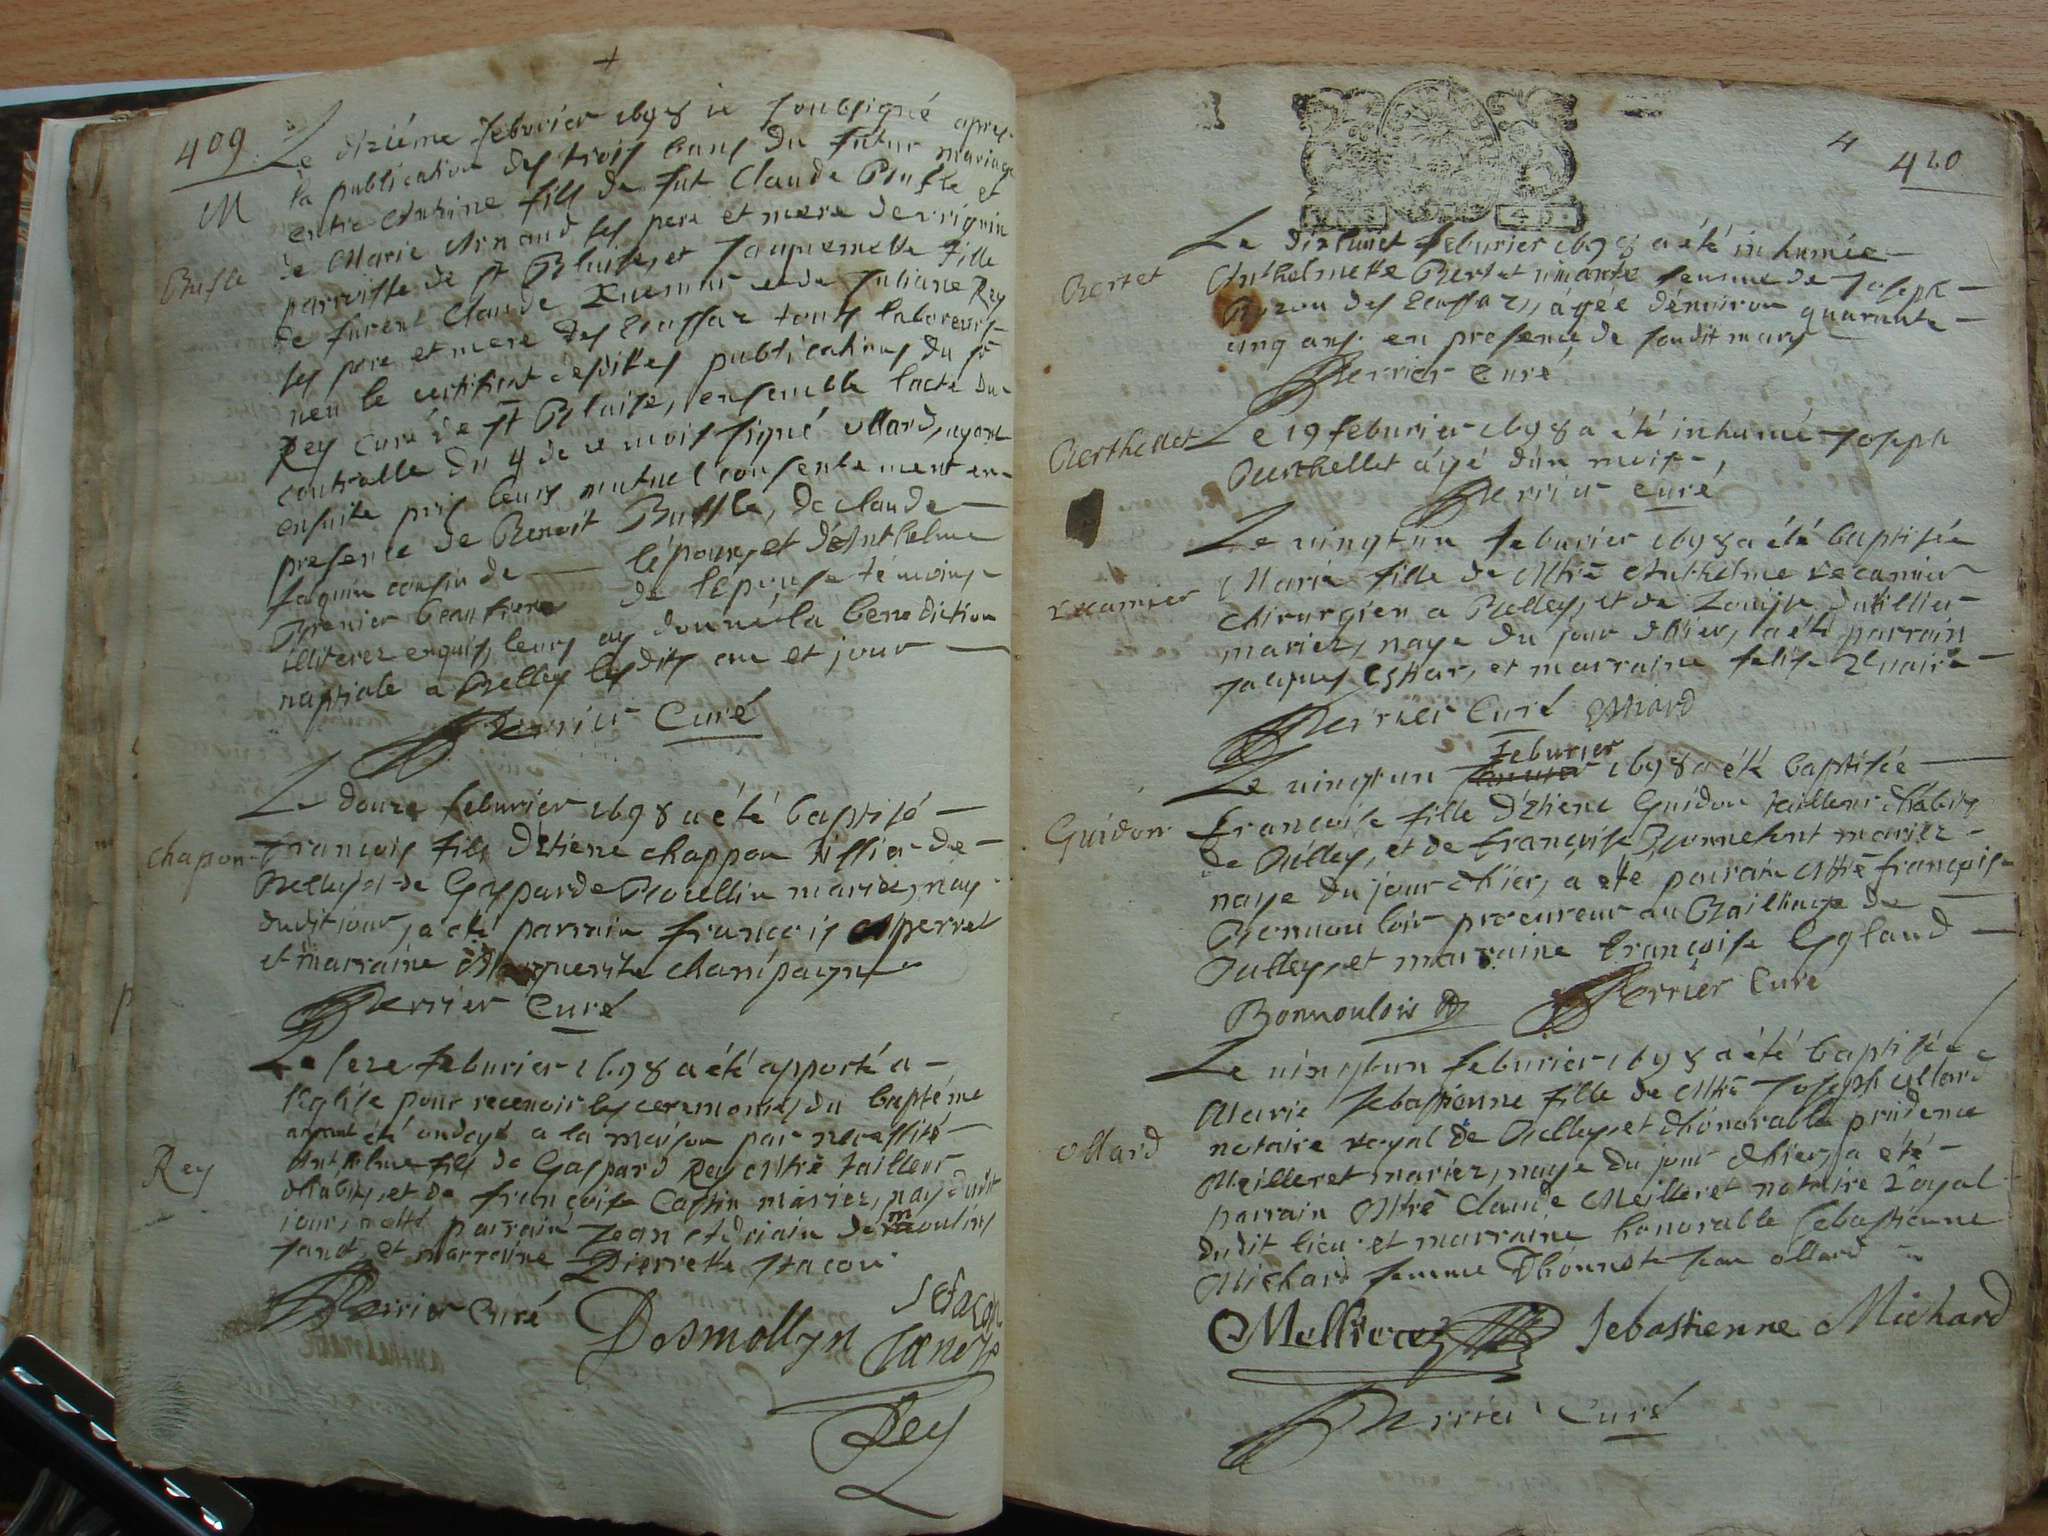 409
Le diziéme feburier 1698 ie soubsigné apres
M
la publication des trois bans du futur mariage
entre Anthine fils de fut Claude Buffle et
de Marie Arnaud ses pere et mere de
Buffle
parroisse de St Blaise, et Jaquemette fille
de furent Claude et de Juliane Rey
ses pere et mere des Ecassaz tous laboreurs
veu le certificat desdittes publications du sr
Rey curé de St Blaise, ensemble l'acte du
controlle du 9 de ce mois signé ollard, ayant
ensuite pris leurs mutuel consentement en
presence de Benoit Buffle, de Claude
Jaquin cousin de l'epoux, et d'Anthelme
Grenier beaufrere de l'epouse temoins
illiterez enquis, leurs ay donné la benediction
nuptiale a Belley lesdits an et jour
Perrier Curé
Le douze feburier 1698 a été baptisé
chapon
François fils d'Etiene chappon tissier de
Belley et de Gasparde Roullin mariez, nay
dudit jour, a été parrain françois Perret
et marraine Marguerite champagne
Perrier Curé
Le seze feburier 1698 a été apporté a
l'Eglise pour recevoir les ceremonies du baptéme
ayant été ondoyé a la maison par necessité
Rey
Anthelme fils de Gaspard Rey Mtre tailleur
d'habits, et de françoise Castin mariez, nay dudit
jour, a été parrain Jean de moulins
et marraine Pierrette Stacon
Perrier Curé
Desmollyn
Rey
4
420
Le dizhuict feburier 1698 a été inhumée
Bertet
Anthelmette Bertet vivante femme de Joseph
des Ecassaz, agée d'environ quarante
cinq ans. en presence de sondit mary
Perrier Curé
Berthellet
Le 19 feburier 1698 a été inhumé Joseph
Berthellet agé d'un mois,
Perrier curé
Le vingtun feburier 1698 a été baptisée
recamier
Marie fille de Mtre Anthelme recamier
chirurgien a Belley, et de Louise Dutillier
mariez, naye du jour d'hier, a été parrain
Jacques et marraine
Perrier Curé
feburier
Le vingtun 1698 a été baptisée
Guidon
françoise fille d'Etiene Guidon tailleur d'habits
de Belley, et de françoise Bonnefont mariez
naye du jour d'hier, a eté parrain Mtre françois
Bonmoulois procureur au Bailliage de
Belley, et marraine françoise Ggland
Bonmoulois
Perrier Curé
Le vingtun feburier 1698 a été baptisée
Marie Sebastienne fille de Mtre Joseph ollard
ollard
notaire royal de Belley, et d'honorable prudence
Meilleret mariez, naye du jour d'hier, a été
parrain Mtre Claude Meilleret notaire royal
dudit lieu et marraine honorable Sebastienne
Michard femme d'honneste Jean ollard
Mellieret
Sebastienne Michard
Perrier Curé